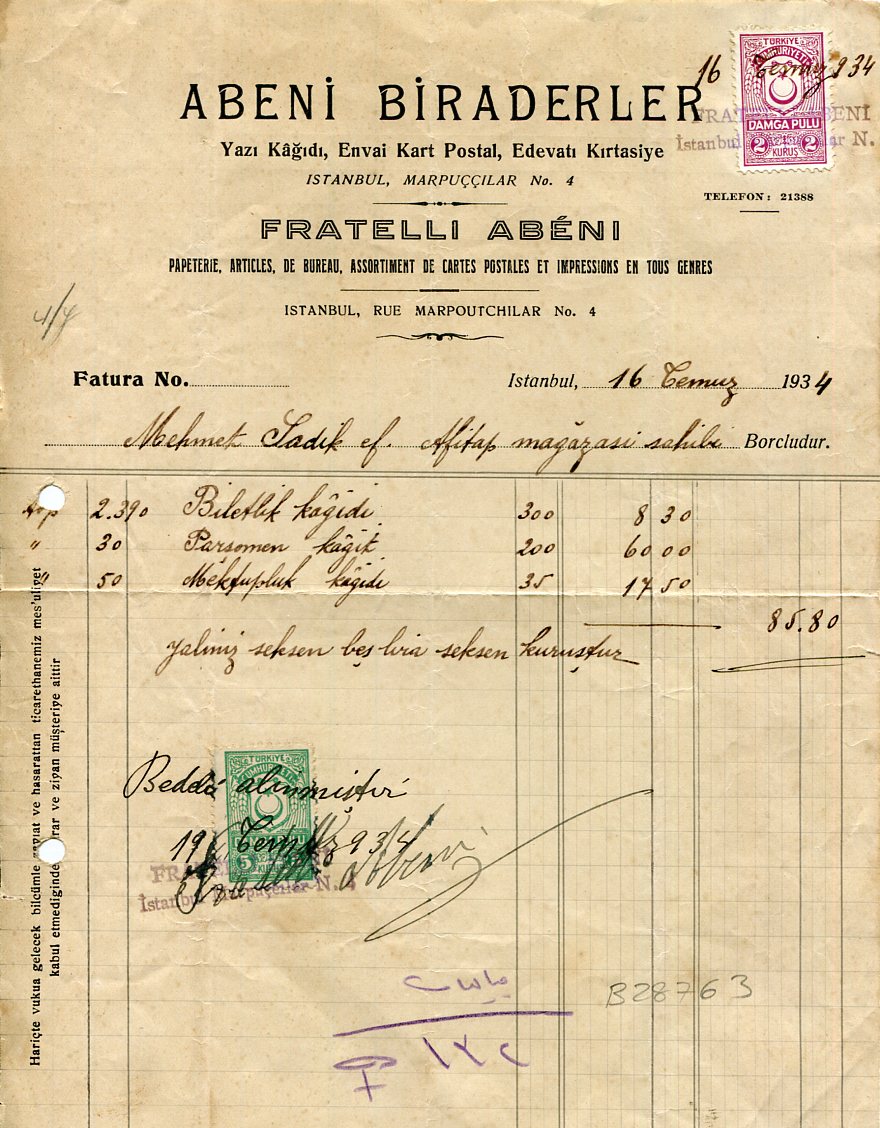 16 Temuz 934
TÜRKİYE
CUMHURİYETİ
DAMGA PULU
2 KURUŞ 2
FRATELLI ABENİ
İstanbul Marpuççılar N.
ABENİ BİRADERLER
Yazı Kâğıdı, Envai Kart Postal, Edevatı Kırtasiye
ISTANBUL, MARPUÇÇILAR No. 4
TELEFON: 21388
FRATELLI ABÉNI
PAPETERIE, ARTICLES, DE BUREAU, ASSORTIMENT DE CARTES POSTALES ET IMPRESSIONS EN TOUS GENRES
ISTANBUL, RUE MARPOUTCHILAR No. 4
4/7
Fatura No.
Istanbul, 16 Temuz 1934
Mehmet Sadik ef. Afitap mağazasi sahibi Borcludur.
top 2.390 Biletlik kâğidi 300 8 30
" 30 Parsomen kâğit 200 60 00
" 50 Mektupluk kâğidi 35 17 50
85.80
yaliniz seksen beş lira seksen kuruştur
Bedeli alınmıştır
TÜRKİYE
CUMHURİYETİ
5
19 Temuz 934
Fratelli Abeni
FRATELLI ABENİ
İstanbul Marpuççılar N. 4
B28763
١٢٥
Hariçte vukua gelecek bilcümle zayıat ve hasarattan ticarethanemiz mes'uliyet
kabul etmediğinden zarar ve ziyan müşteriye aittir